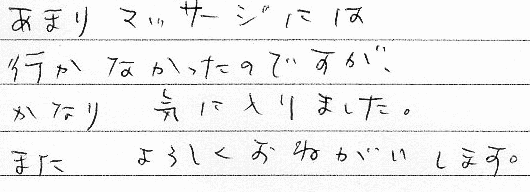 あまり マッサージには
行かなかったのですが、
かなり 気に入りました。
また よろしくおねがいします。